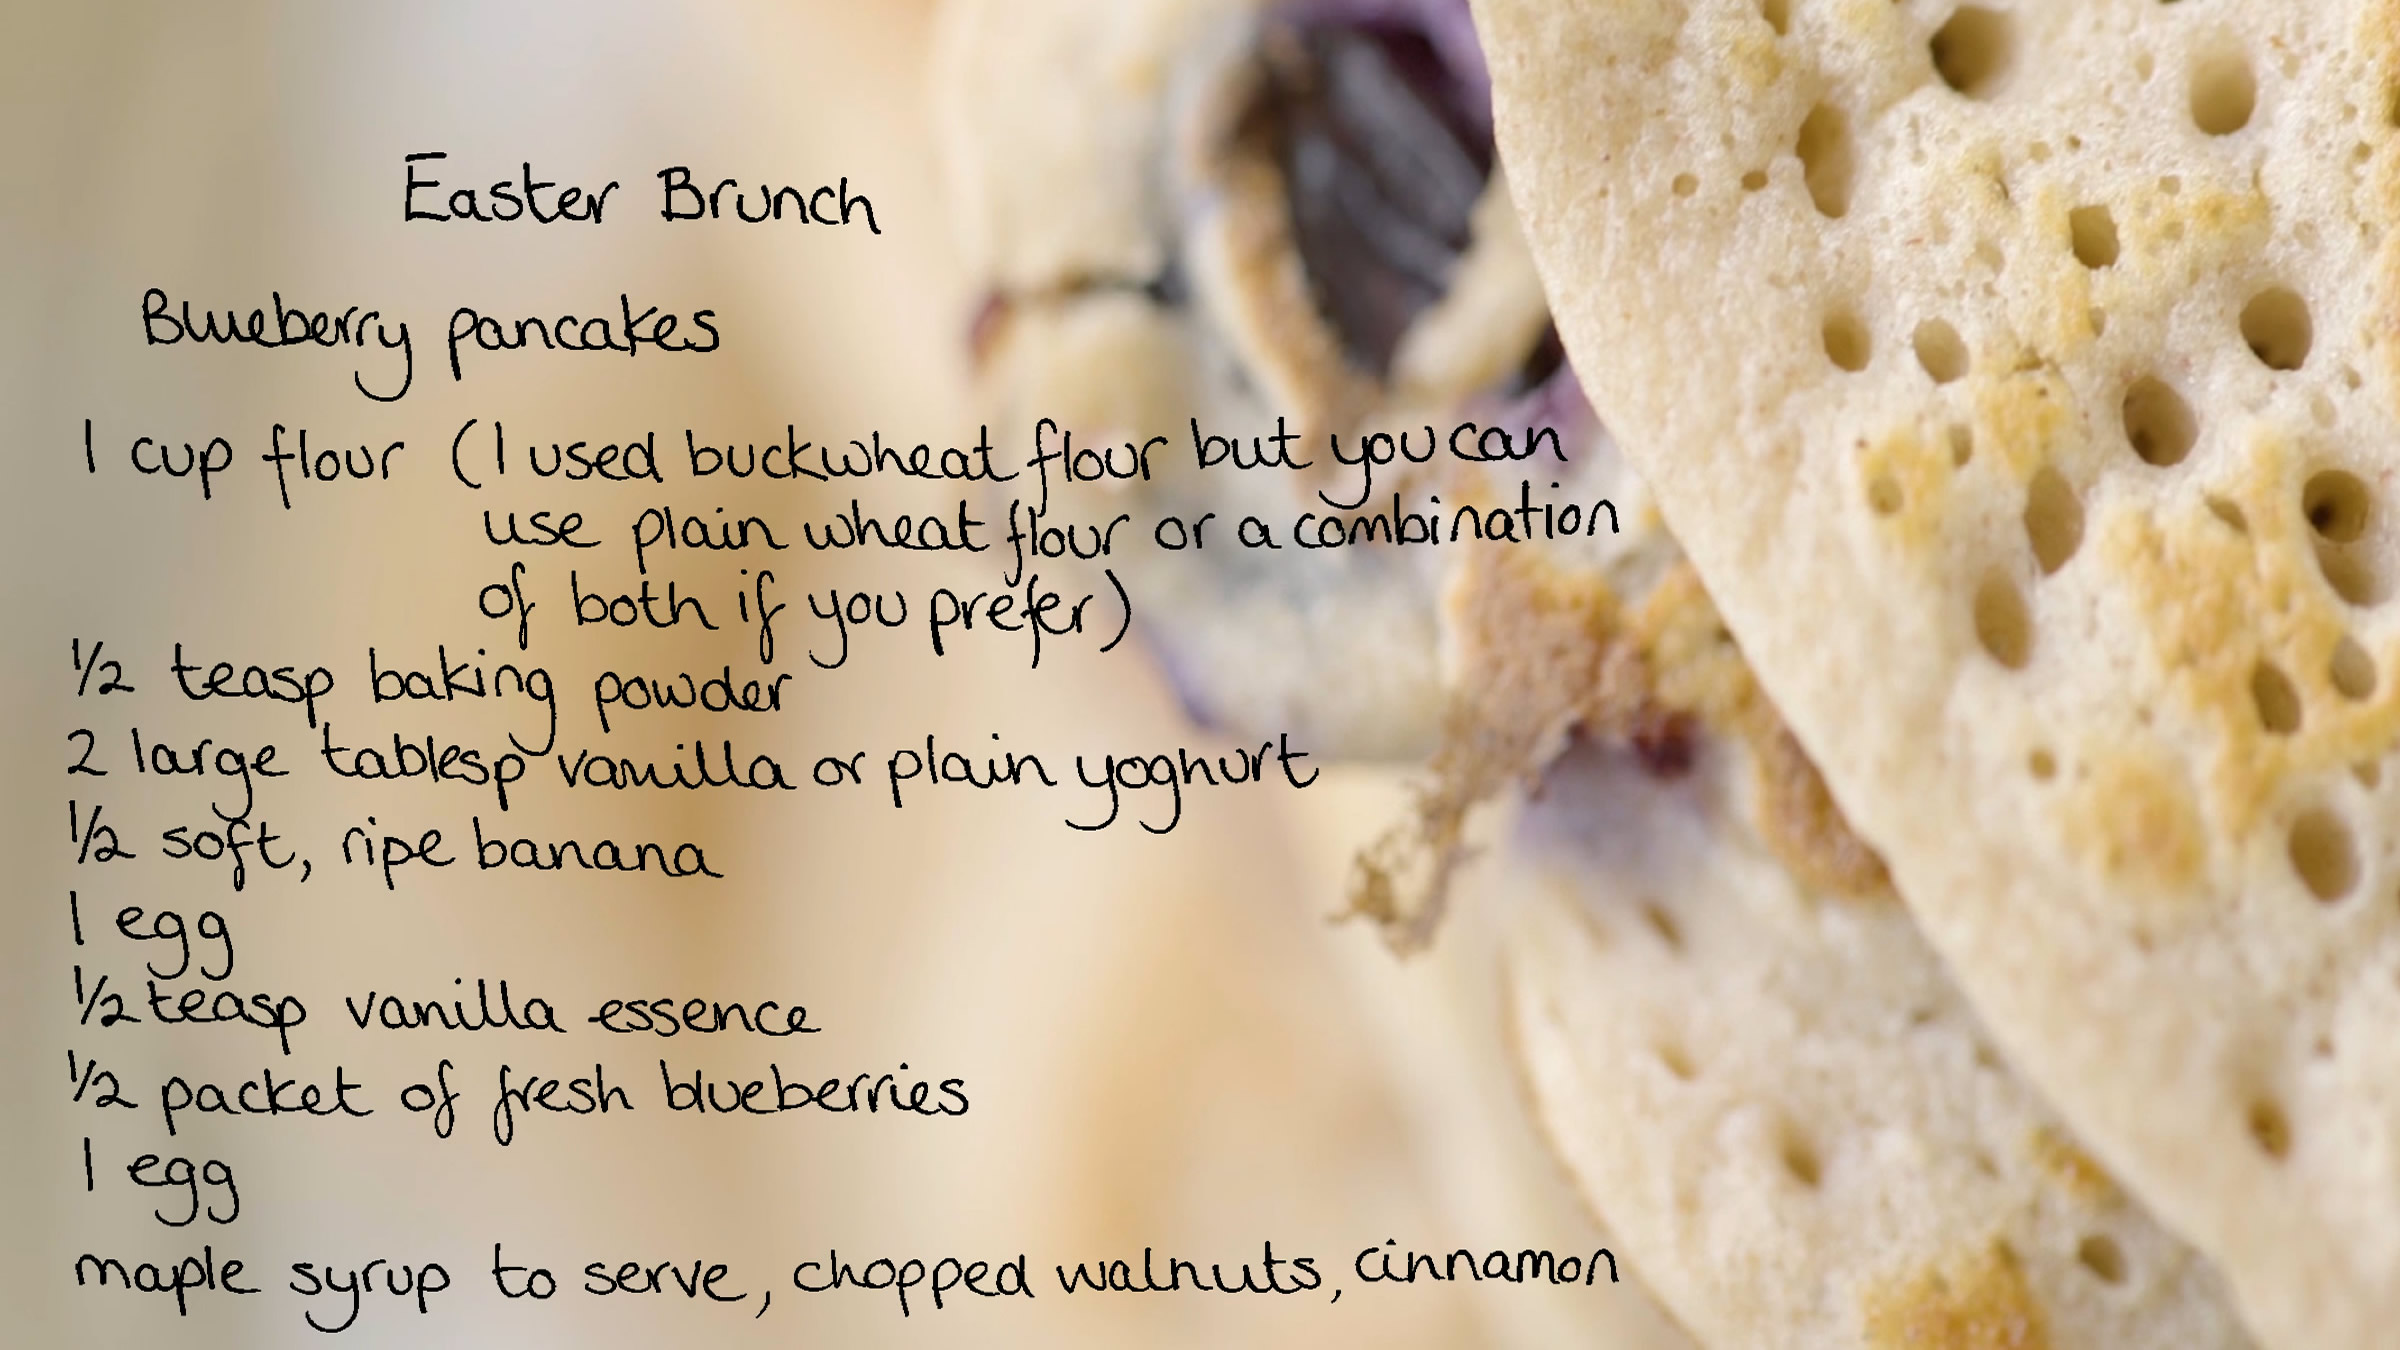 Easter Brunch
Blueberry pancakes
1 cup flour (I used buckwheat flour but you can
use plain wheat flour or a combination
of both if you prefer)
1/2 teasp baking powder
2 large tablesp vanilla or plain yoghurt
1/2 soft, ripe banana
1 egg
1/2 teasp vanilla essence
1/2 packet of fresh blueberries
1 egg
maple syrup to serve, chopped walnuts, cinnamon